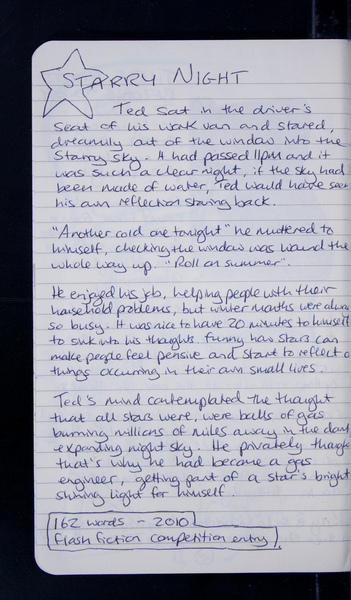 STARRY NIGHT
Ted sat in the driver's
seat of his work van and stared,
dreamily out of the window into the
starry sky. It had passed 11pm and it
was such a clear night, if the sky had
been made of water, Ted would have seen
his own reflection staring back.
"Another cold one tonight" he muttered to
himself, checking the window was wound the
whole way up. "Roll on summer".
He enjoyed his job, helping people with their
household problems, but winter months were always
so busy. It was nice to have 20 minutes to himself
to sink into his thoughts. Funny how stars can
make people feel pensive and start to reflect on
things occurring in their own small lives.
Ted's mind contemplated the thought
that all stars were, were balls of gas
burning millions of miles away in the dark,
expanding night sky. He privately thought
that's why he had become a gas
engineer, getting part of a star's bright
shining light for himself.
162 words - 2010
flash fiction competition entry